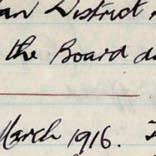 District
the Board
March 1916.